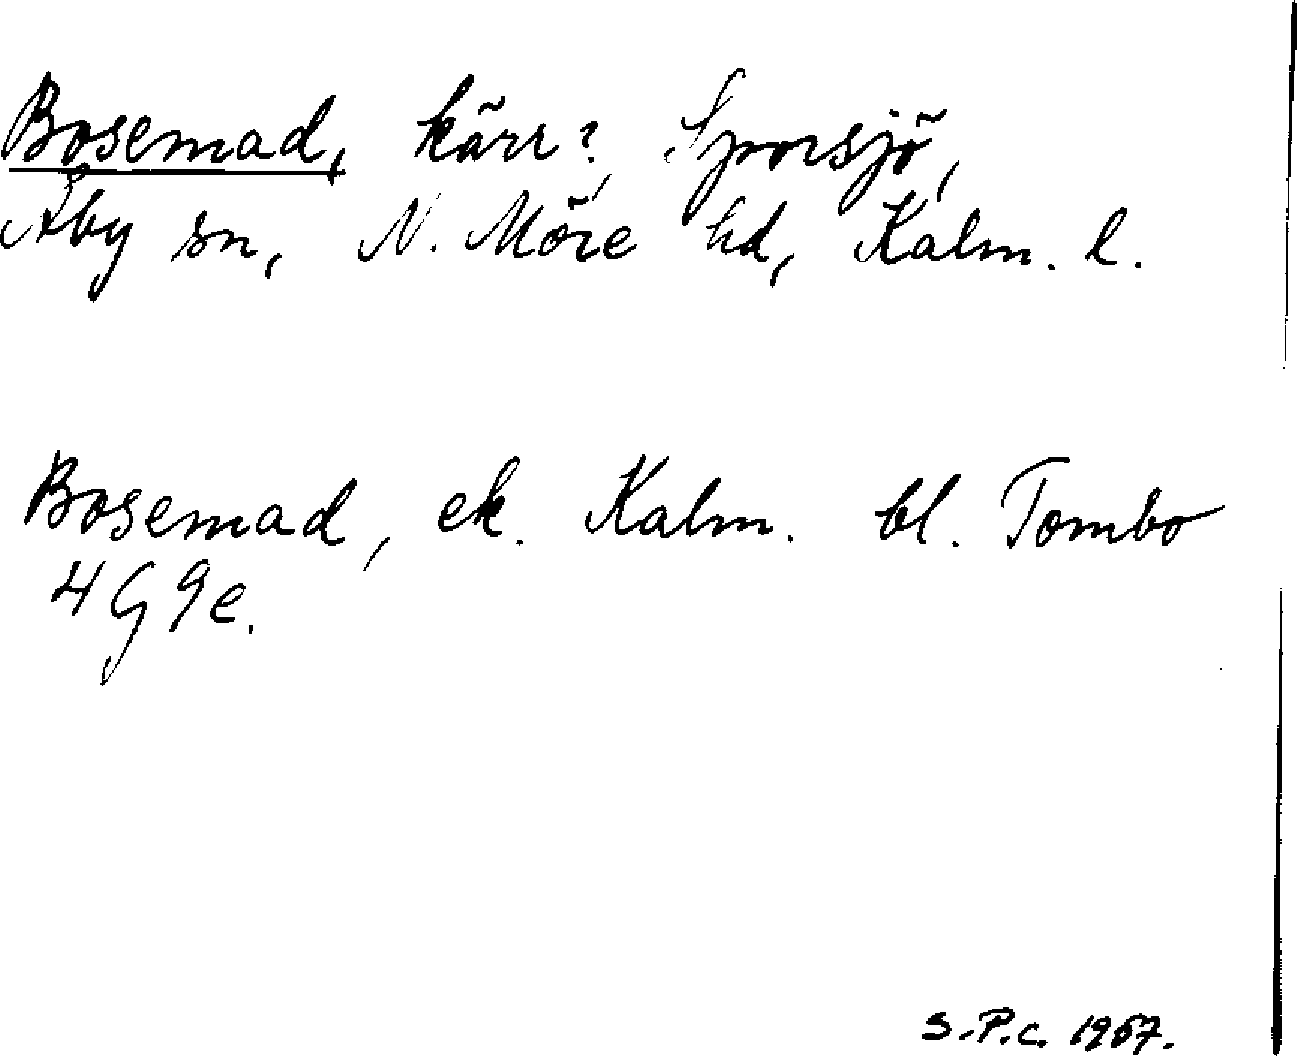 Bosemad, kärr?, Sporsjö,
Åby sn, N. Möre hd, Kalm. l.
Bosemad, ek. Kalm. bl. Tombo
4G9e.
S.P.C. 1967.